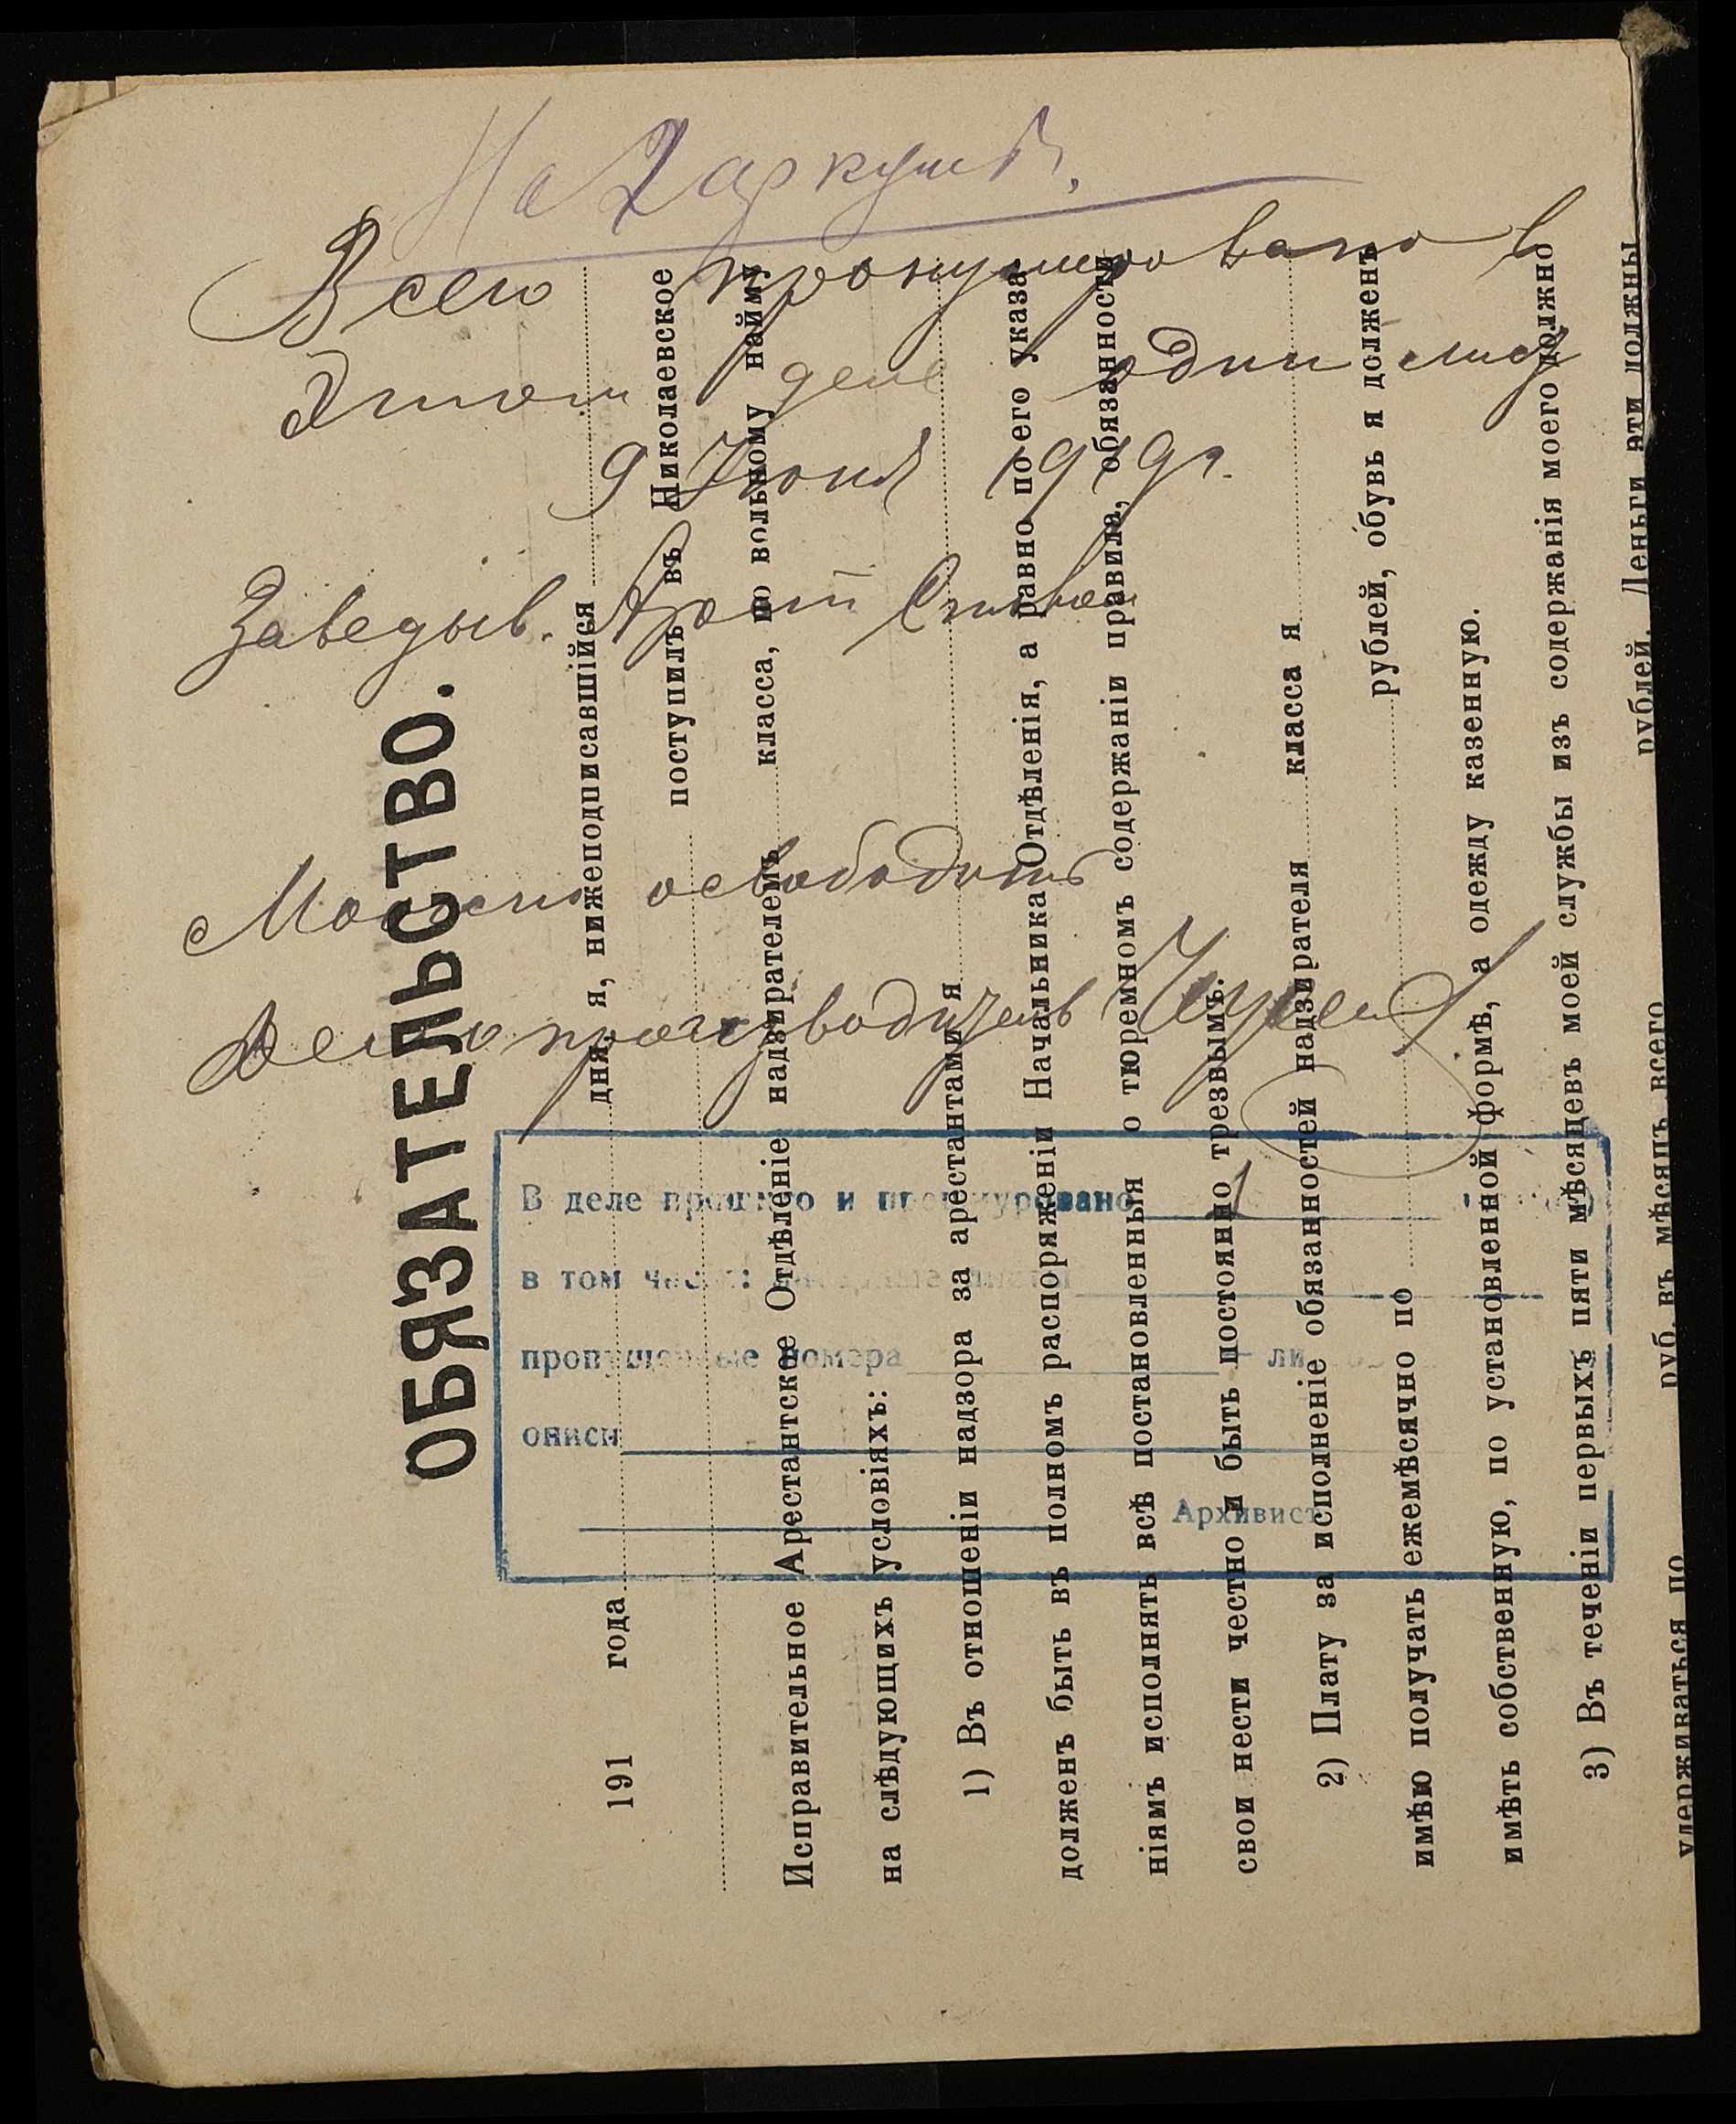 На 2 аркушах.
Всего пронумеровано в
этом деле один лист
9 Июня 1919 г.
Заведыв. Арест
Можно освободить
Делопроизводитель
ОБЯЗАТЕЛЬСТВО.
191 года дня я, нижеподписавшійся
поступилъ въ Николаевское
Исправительное Арестантское Отдѣленіе надзирателемъ класса, по вольному найму
на слѣдующихъ условіяхъ:
1) Въ отношеніи надзора за арестантами я
долженъ быть въ полномъ распоряженіи Начальника Отдѣленія, а равно по его указа-
ніямъ исполнять всѣ постановленныя о тюремномъ содержаніи правила, обязанности
свои нести честно и быть постоянно трезвымъ.
2) Плату за исполненіе обязанностей надзирателя класса я
имѣю получать ежемѣсячно по рублей, обувь я долженъ
имѣть собственную, по установленной формѣ, а одежду казенную.
3) Въ теченіи первыхъ пяти мѣсяцевъ моей службы изъ содержанія моего должно
удерживаться по руб. въ мѣсяцъ всего рублей. Деньги эти должны
В деле прошито и пронумеровано 1
в том числе: листы
пропущенные номера
описи
Архивист